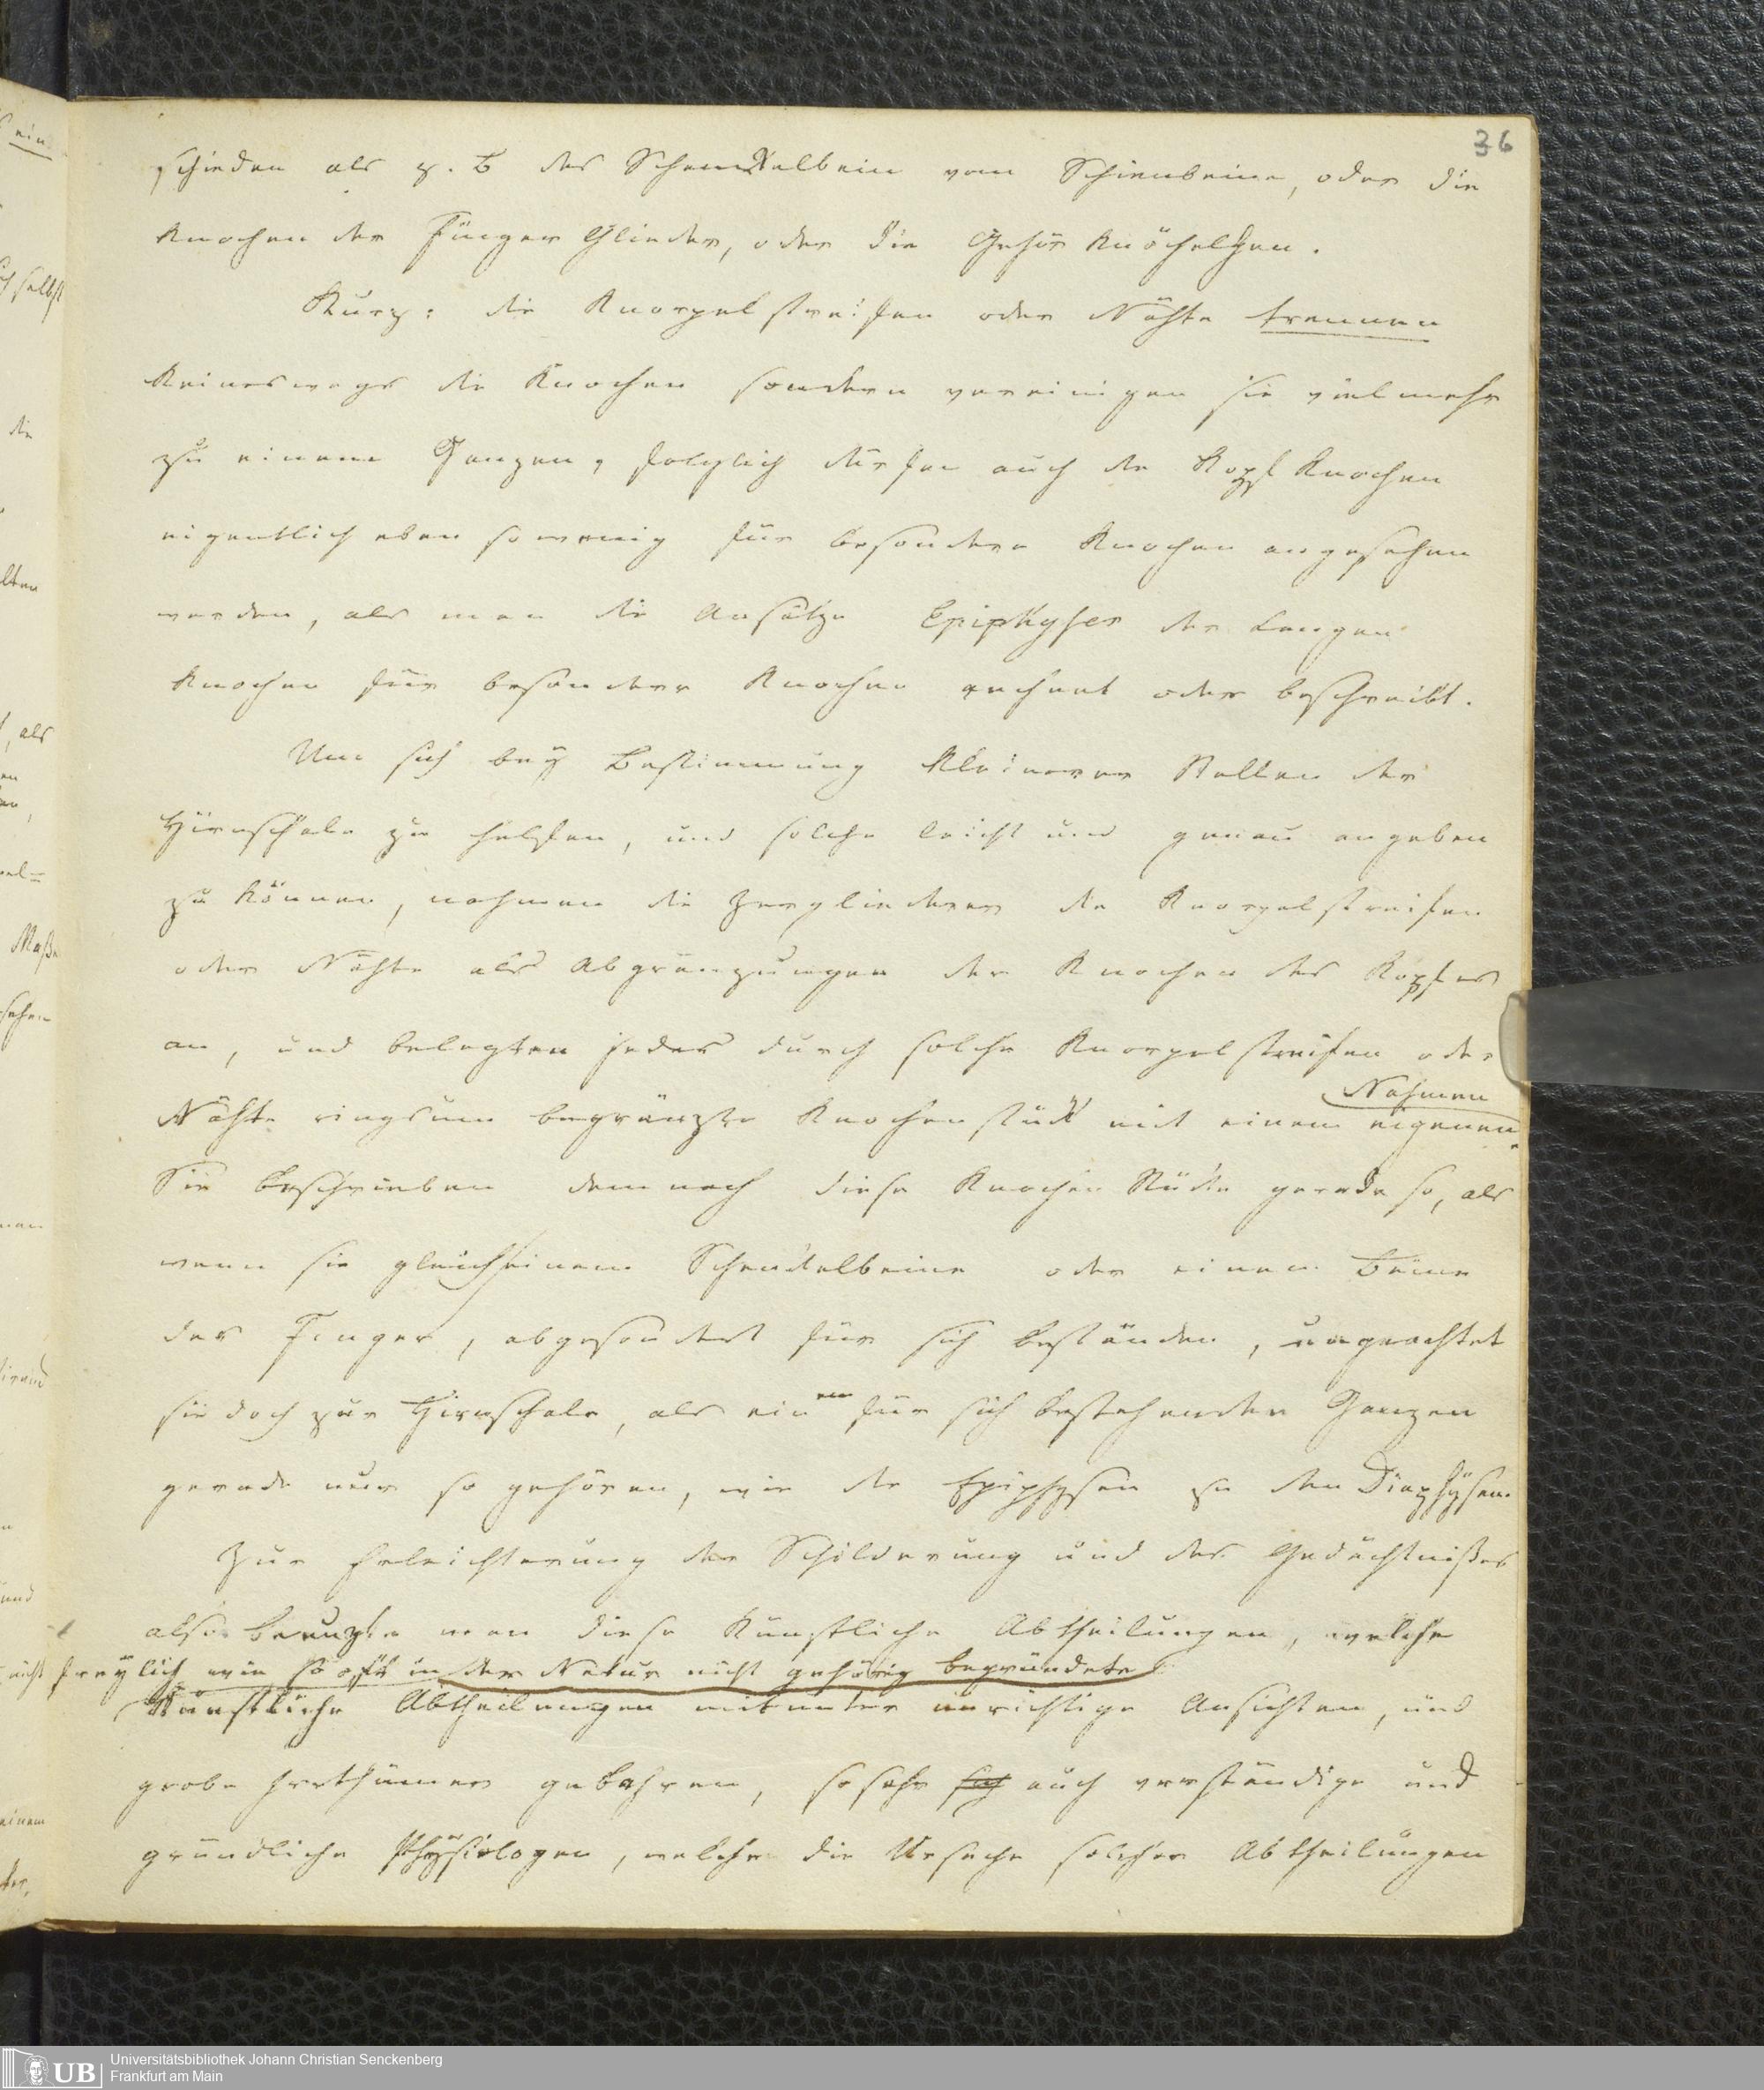 36
schieden als z. B des Schenkelbein vom Schienbeine, oder die
Knochen der Finger Glieder, oder die Gehör Knöchelchen.
Kurz: die Knorpel streifen oder Nähte trennen
Keinesweges die Knochen sondern vereinigen sie vielmehr
zu einem Ganzen, folglich dürfen auch die Kopf Knochen
eigentlich eben so wenig für besondere Knochen angesehen
werden, als man die Ansätze Epiphyses der langen
Knochen für besondere Knochen rechnet oder beschreibt.
Um sich bey Bestimmung Kleinerer Stellen der
Hirnschale zu helfen, und solche leicht und genau angeben
zu können, nahmen die Zergliederer die Knorpel streifen
oder Nähte als Abgränzungen der Knochen des Kopfes
an, und belegten jedes durch solche Knorpel streifen oder
Nahmen
Nähte ringsum begränzte Knochenstück mit einem eigenen.
Sie beschrieben demnach diese Knochen Stücke gerade so, als
wenn sie gleich einem Schenkelbeine oder einem Beine
der Finger, abgesondert für sich beständen, ungeachtet
sie doch zur Hirnschale, als einem für sich bestehenden Ganzen
gerade nur so gehören, wie die Epiphysen zu den Diaphysen.
Zur Erleichterung der Schilderung und des Gedächtnißes
also benuzte man diese Künstliche Abtheilungen, welche
freylich wie so oft in der Natur nicht gehörig begründete
Künstliche Abtheilungen mitunter unrichtige Ansichten, und
grobe Irrthümer gebahren, so sehr sich auch verständige und
gründliche Physiologen, welche die Ursache solcher Abtheilungen
Universitätsbibliothek Johann Christian Senckenberg
Frankfurt am Main
UB